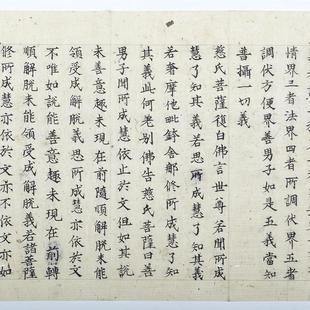 情界三者法界四者所調伏界五者
調伏方便界善男子如是五義當知
普攝一切義
慈氏菩薩復白佛言世尊若聞所成
慧了知其義若思所成慧了知其義
若奢摩他毗鉢舍那修所成慧了知
其義此何差別佛告慈氏菩薩曰善
男子聞所成慧依止於文但如其說
未善意趣未現在前隨順解脫未能
領受成解脫義思所成慧亦依於文
不唯如說能善意趣未現在前轉
順解脫未能領受成解脫義若諸菩薩
修所成慧亦依於文亦不依文亦如